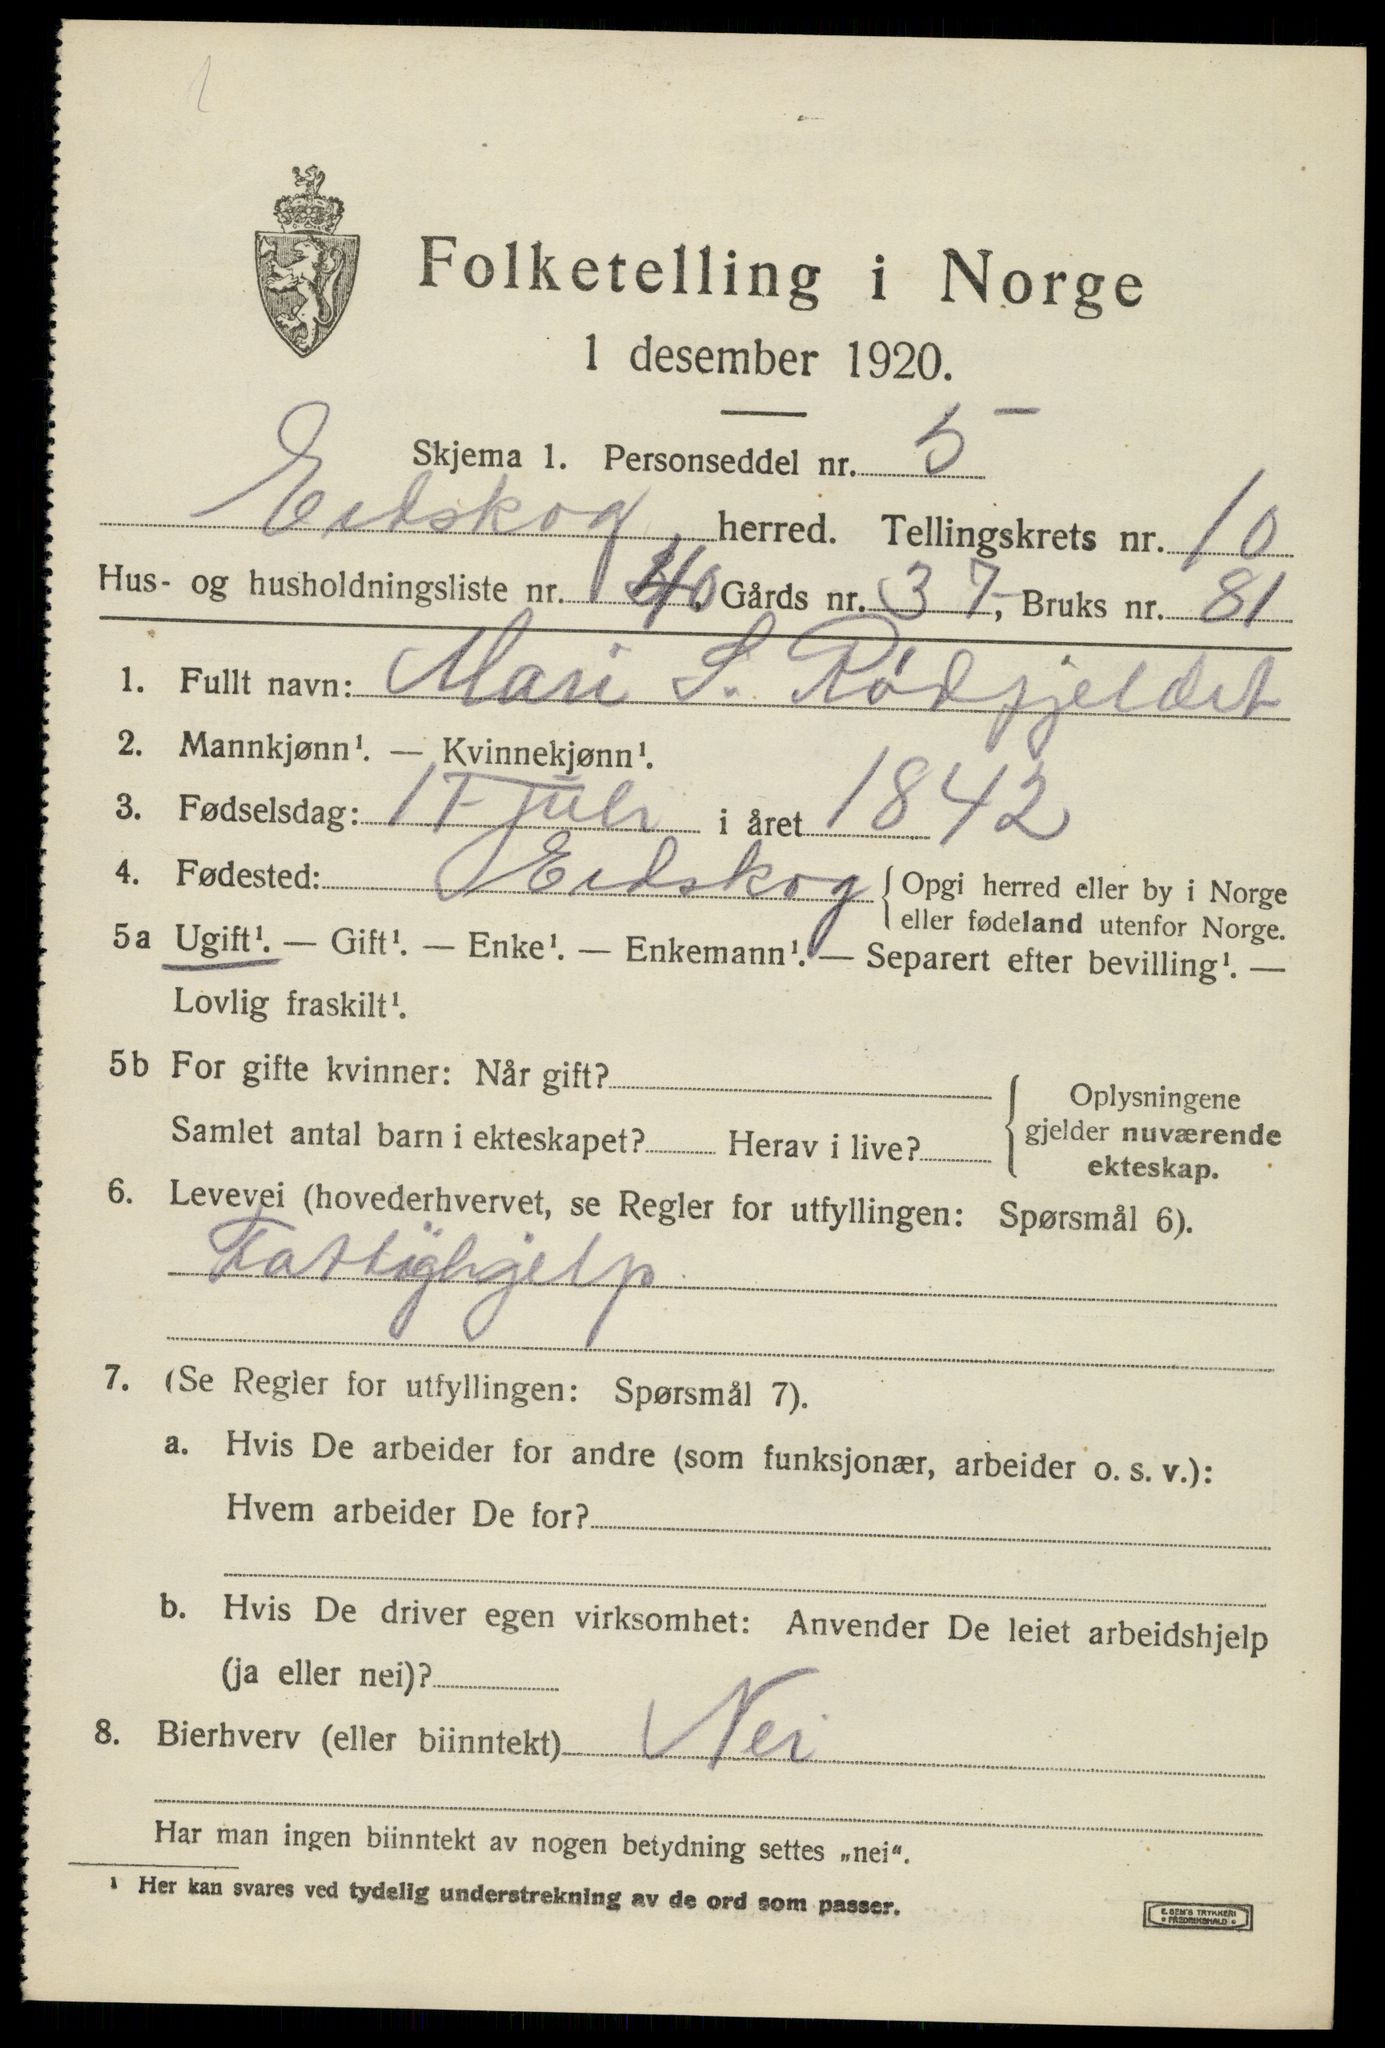 Folketelling i Norge
1 desember 1920.
Skjema 1. Personseddel nr. 5
Eidskog herred. Tellingskrets nr. 10
Hus- og husholdningsliste nr. 40 Gårds nr. 37, Bruks nr. 81
1. Fullt navn: Mari S. Rödfjeldet
2. Mannkjønn¹. — Kvinnekjønn¹.
3. Fødselsdag: 17 Juli i året 1842
4. Fødested: Eidskog {Opgi herred eller by i Norge
eller fødeland utenfor Norge.
5a Ugift¹. — Gift¹. — Enke¹. — Enkemann¹. — Separert efter bevilling¹. —
Lovlig fraskilt¹.
5b For gifte kvinner: Når gift?
Samlet antal barn i ekteskapet? Herav i live?
Oplysningene
gjelder nuværende
ekteskap.
6. Levevei (hovederhvervet, se Regler for utfyllingen: Spørsmål 6).
Fattighjelp
7. (Se Regler for utfyllingen: Spørsmål 7).
a. Hvis De arbeider for andre (som funksjonær, arbeider o. s. v.):
Hvem arbeider De for?
b. Hvis De driver egen virksomhet: Anvender De leiet arbeidshjelp
(ja eller nei)?
8. Bierhverv (eller biinntekt) Nei
Har man ingen biinntekt av nogen betydning settes „nei“.
¹ Her kan svares ved tydelig understrekning av de ord som passer.
E. SEM'S TRYKKERI
FREDRIKSHALD